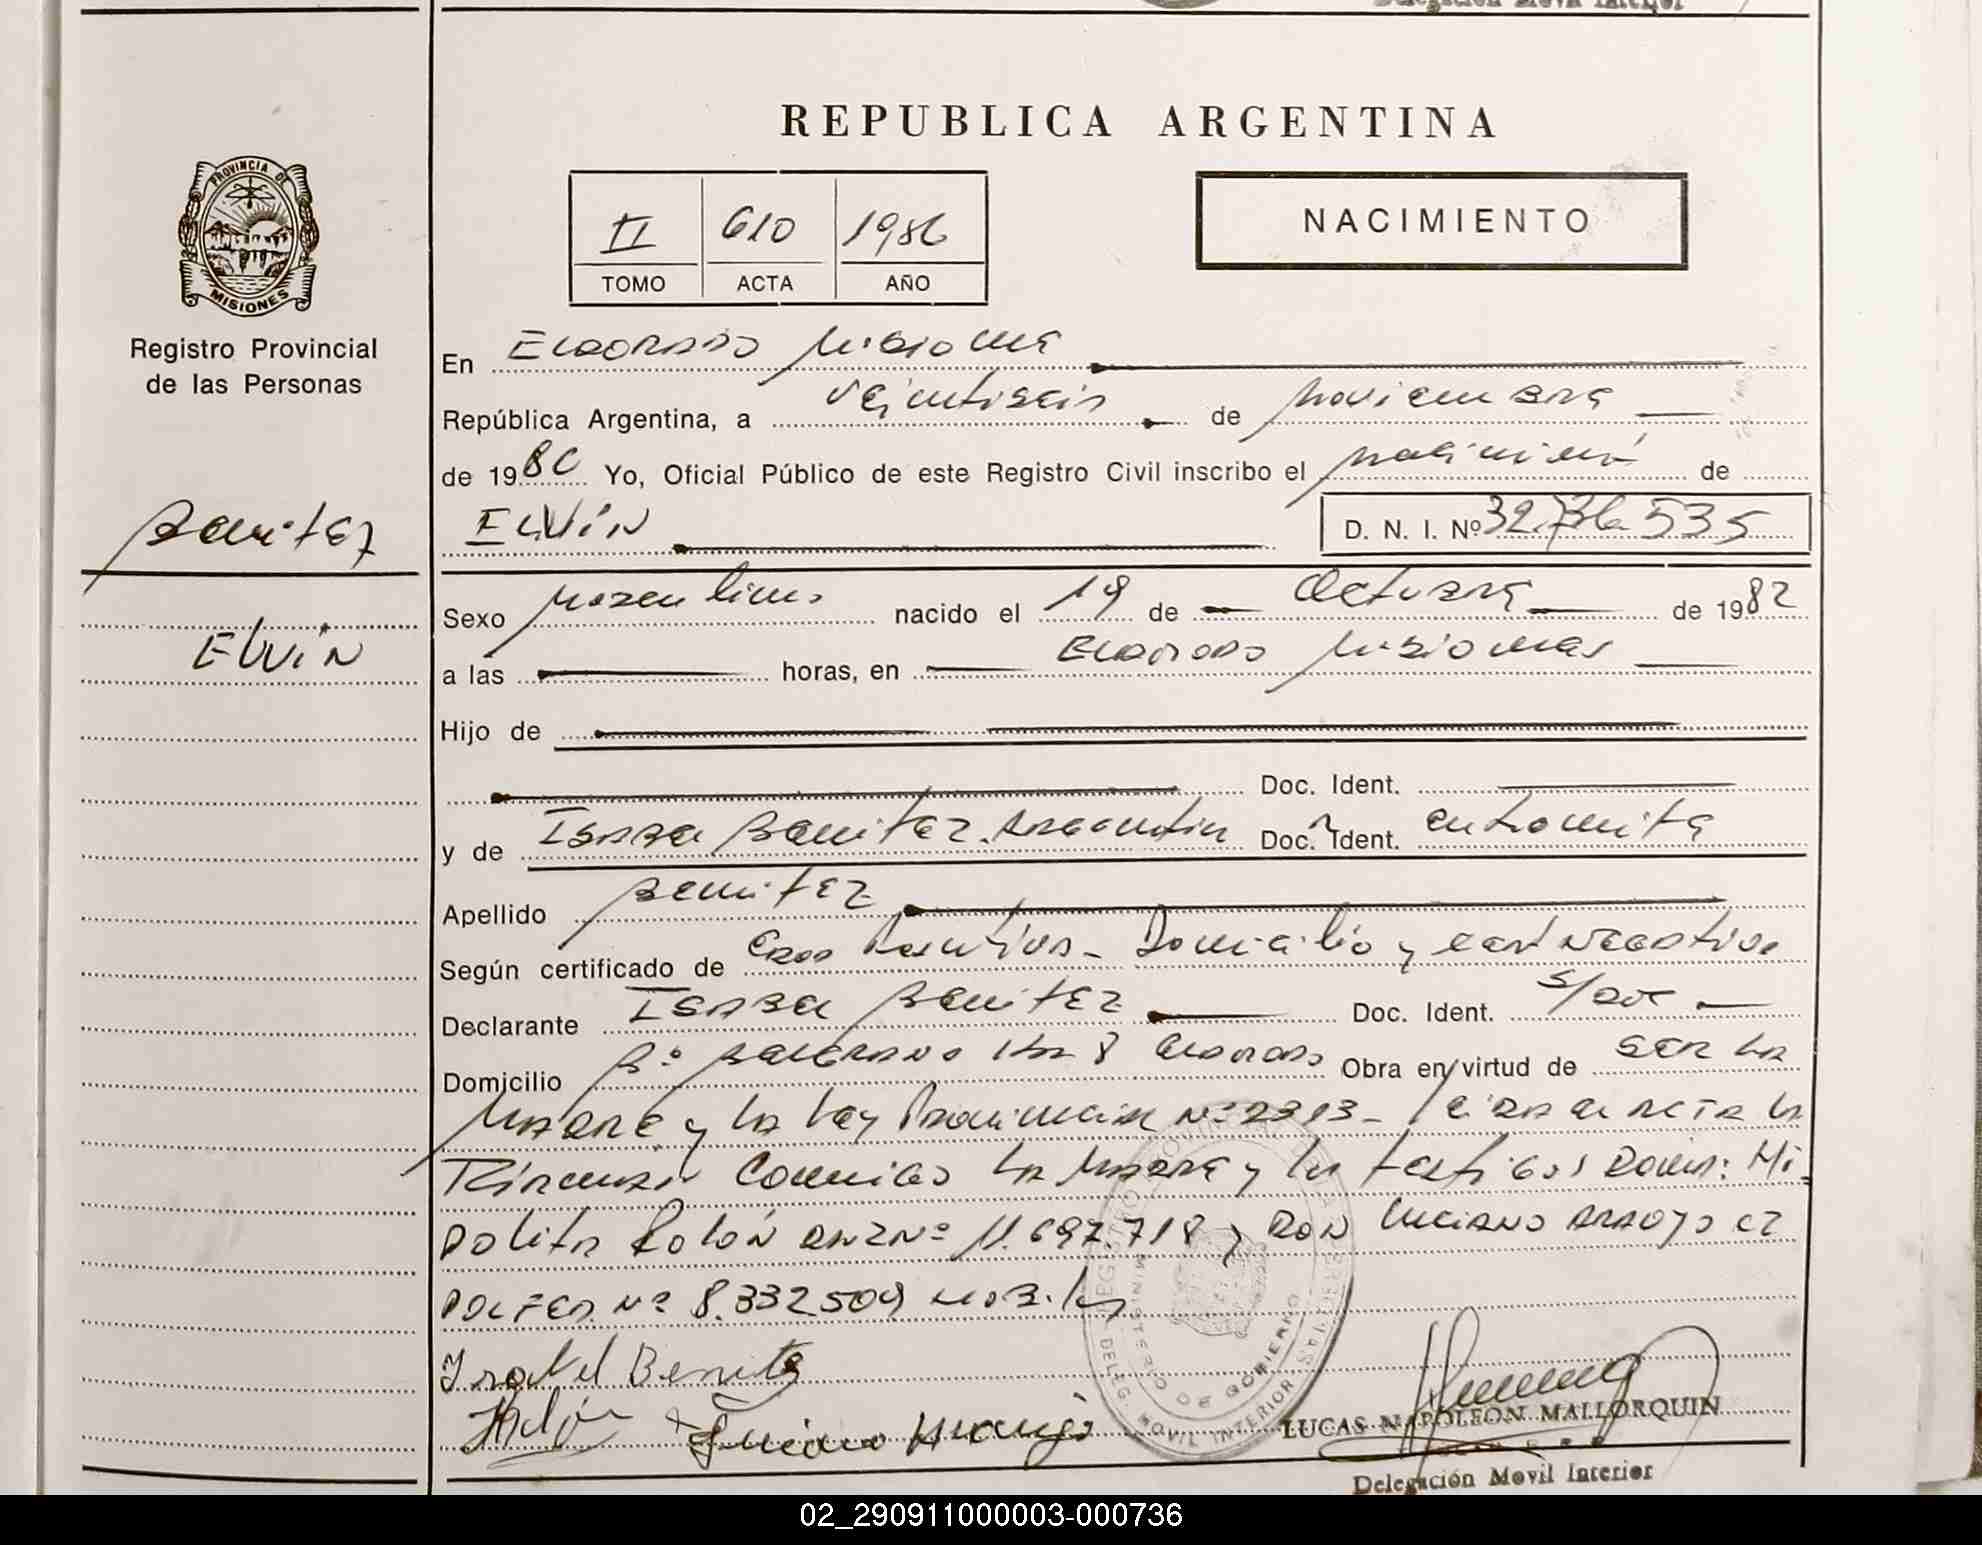 REPUBLICA ARGENTINA
PROVINCIA DE
MISIONES
Registro Provincial
de las Personas
II 610 1986
TOMO ACTA AÑO
NACIMIENTO
En Eldorado Misiones
República Argentina, a veintiseis de noviembre
de 1986 Yo, Oficial Público de este Registro Civil inscribo el de
Benitez
Elvin
ELVIN D. N. I. Nº 32.736.535
Sexo masculino nacido el 19 de Octubre de 1982
a las horas, en Eldorado Misiones
Hijo de
Doc. Ident.
y de Isabel Benitez. Argentina Doc. Ident. en tramite
Apellido Benitez
Según certificado de Domicilio y negativo
Declarante Isabel Benitez Doc. Ident. s/doc
Domicilio Bº Belgrano Km 8 Eldorado Obra en virtud de ser la
Madre y la Ley Provincial Nº 2313- Leida el acta la
Firman Conmigo la Madre y los testigos Doña: Mi-
Rolón Nº 11.697.718 y Don Luciano Arroyo CI
Pol Fed. Nº 8.332509
Isabel Benitez
Rolón Luciano Arroyo
REGISTRO PROVINCIAL DE LAS PERSONAS
MINISTERIO DE GOBIERNO
DELEG. MOVIL INTERIOR
LUCAS NAPOLEON MALLORQUIN
Delegación Movil Interior
02_290911000003-000736